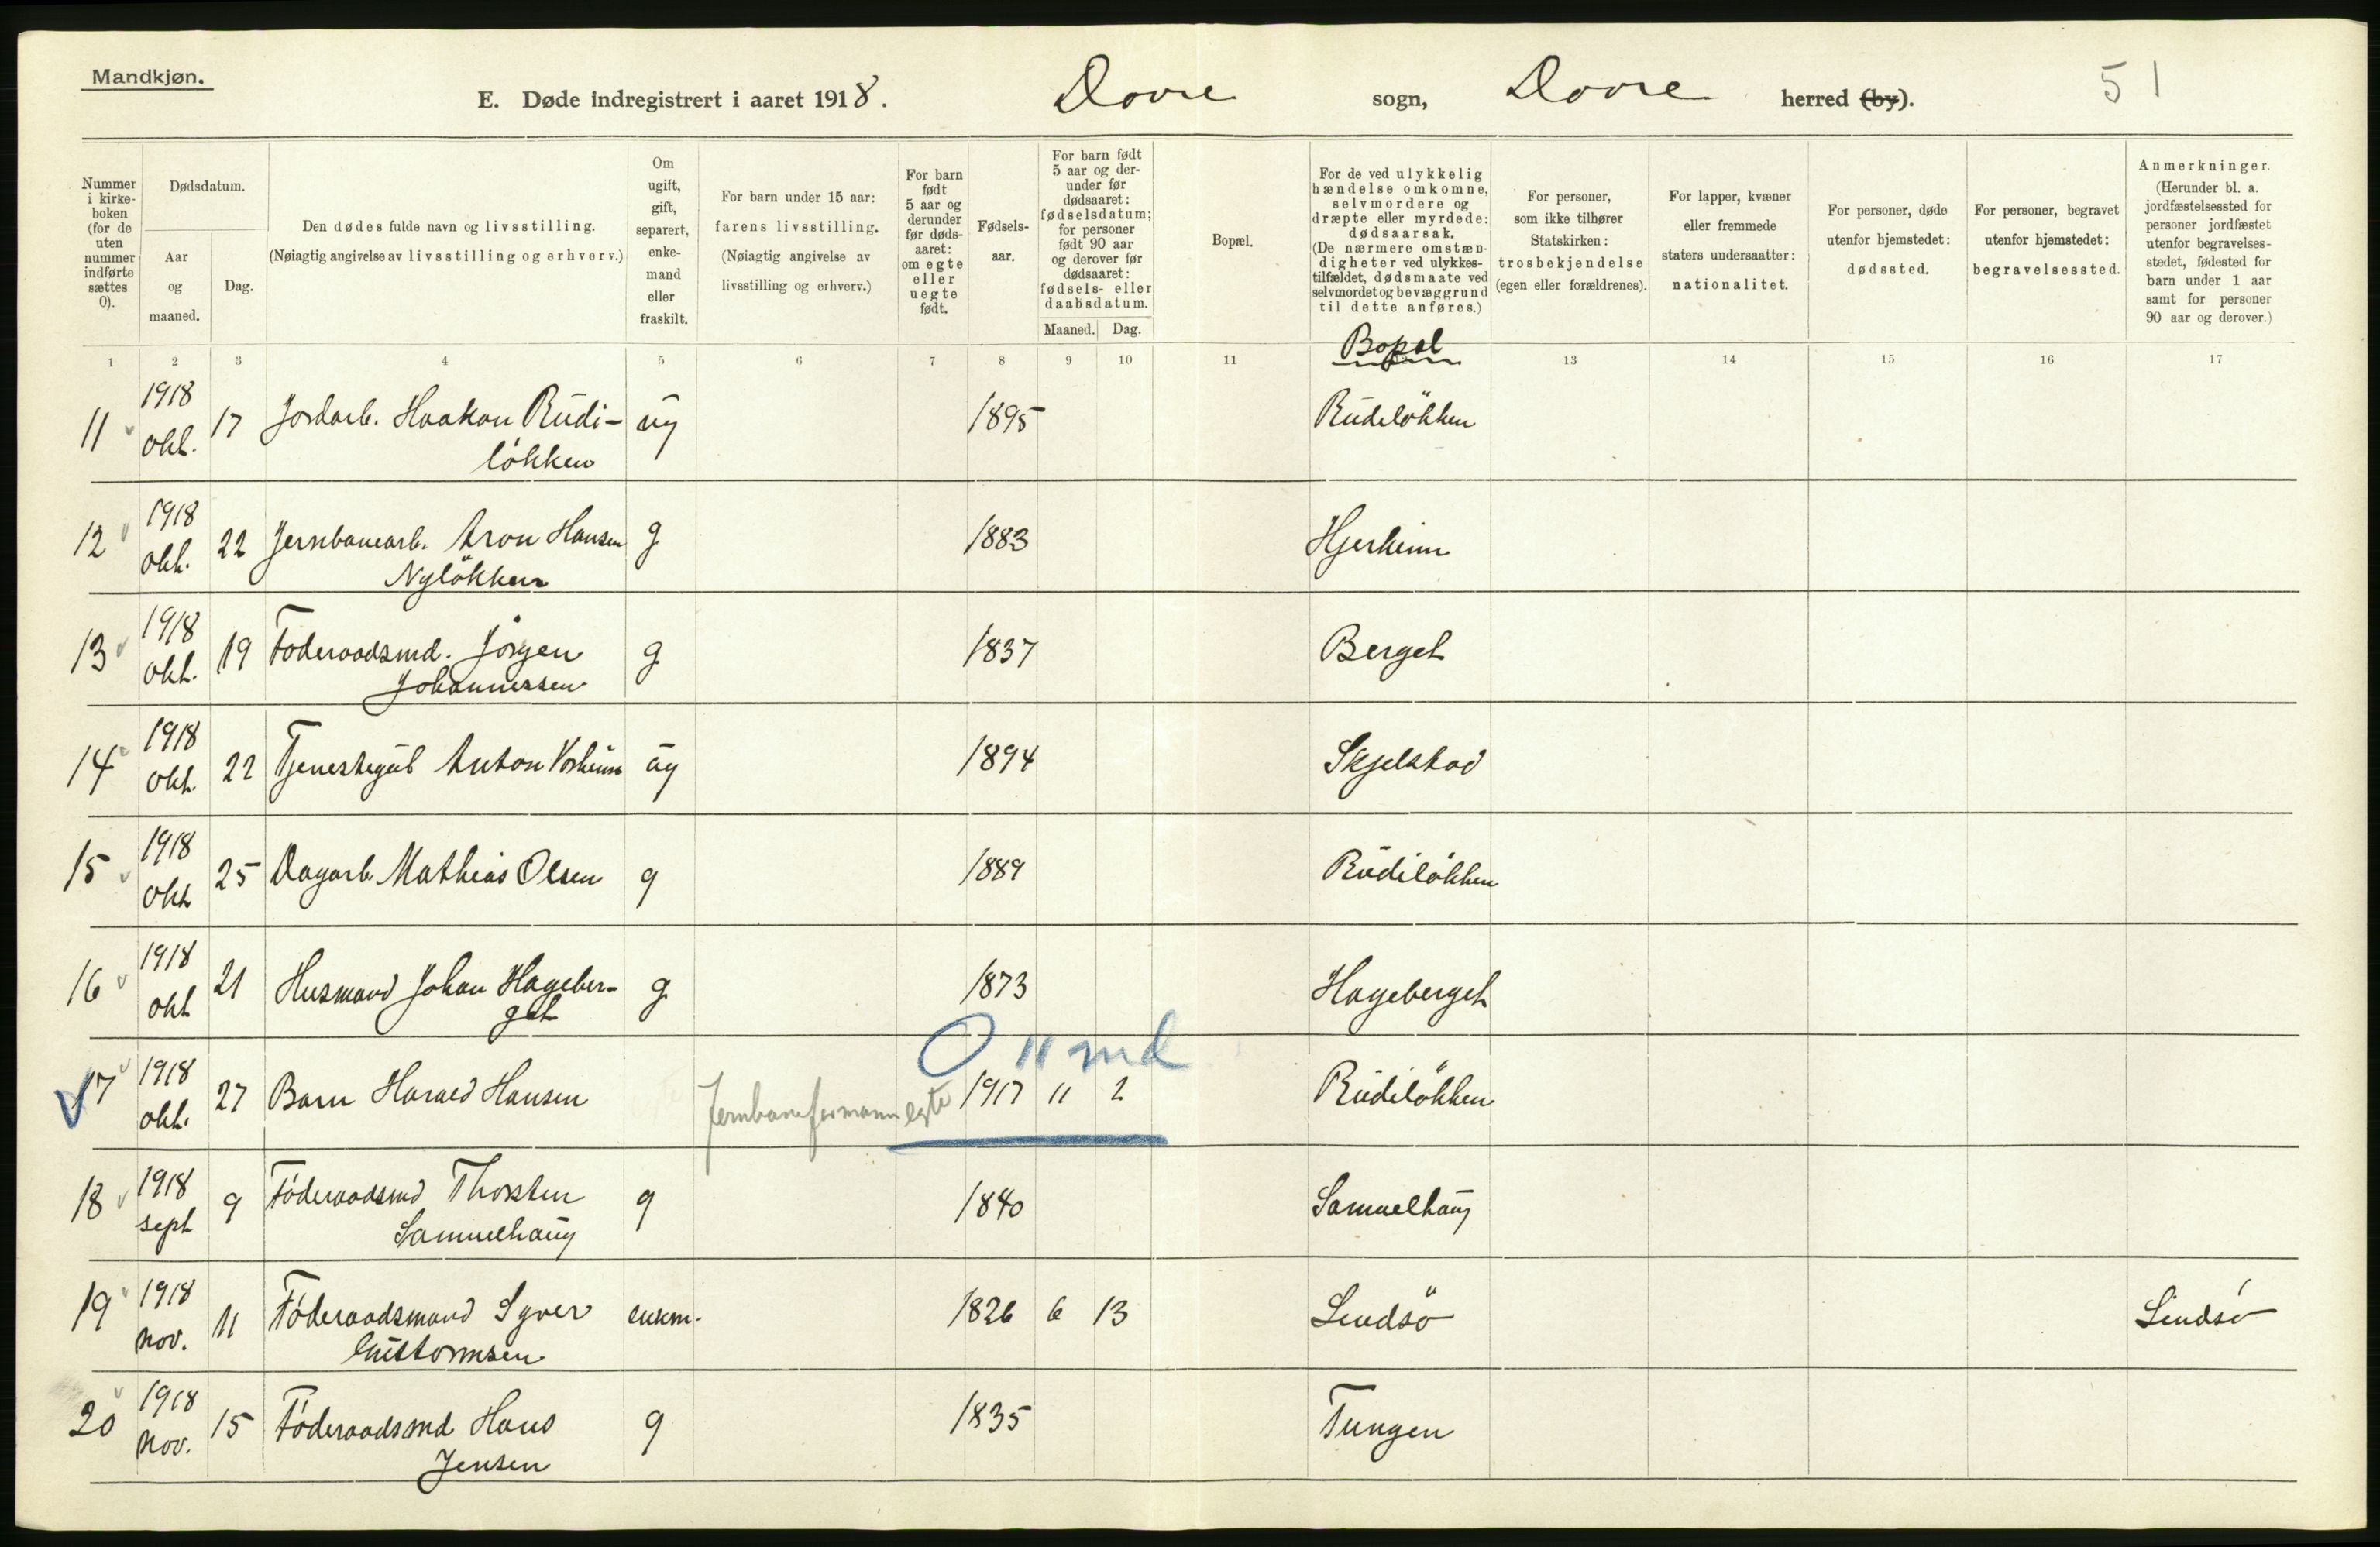 Mandkjøn.
E. Døde indregistrert i aaret 1918. Dovre sogn, Dovre herred (by). 51
Nummer i kirkeboken (for de uten nummer indførte sættes 0).
Dødsdatum.
Aar og maaned.
Dag.
Den dødes fulde navn og livsstilling.
(Nøiagtig angivelse av livsstilling og erhverv.)
Om ugift, gift, separert, enkemand eller fraskilt.
For barn under 15 aar: farens livsstilling.
(Nøiagtig angivelse av livsstilling og erhverv.)
For barn født 5 aar og derunder før dødsaaret: om egte eller uegte født.
Fødselsaar.
For barn født 5 aar og derunder før dødsaaret: fødselsdatum; for personer født 90 aar og derover før dødsaaret: fødsels- eller daabsdatum.
Maaned. Dag.
Bopæl.
For de ved ulykkelig hændelse omkomne, selvmordere og dræpte eller myrdede: dødsaarsak.
(De nærmere omstændigheter ved ulykkestilfældet, dødsmaate ved selvmordet og bevæggrund til dette anføres.)
For personer, som ikke tilhører Statskirken: trosbekjendelse (egen eller forældrenes).
For lapper, kvæner eller fremmede staters undersaatter: nationalitet.
For personer, døde utenfor hjemstedet: dødssted.
For personer, begravet utenfor hjemstedet: begravelsessted.
Anmerkninger.
(Herunder bl. a. jordfæstelsessted for personer jordfæstet utenfor begravelsesstedet, fødested for barn under 1 aar samt for personer 90 aar og derover.)
1 2 3 4 5 6 7 8 9 10 11 Bopæl 13 14 15 16 17
11 1918 okt. 17 Jordarb. Haakon Rudi- ug 1895 Rudeløkken
løkken
12 1918 okt. 22 Jernbanearb. Aron Hansen g 1883 Hjerkinn
Nyløkken
13 1918 okt. 19 Foderaadsmd. Jørgen g 1837 Berget
Johannessen
14 1918 okt. 22 Tjenestegut Anton ug 1894 Skjelstad
15 1918 okt 25 Dagarb. Mathias Olsen g 1889 Rudiløkken
16 1918 okt 21 Husmand Johan Hageber- g 1873 Hageberget
get
0 11 md
17 1918 okt. 27 Barn Harald Hansen Jernbaneformann egte 1917 11 2 Rudiløkken
18 1918 sept 9 Føderaadsmd Thorsten g 1840 Samuelhaug
Samuelhaug
19 1918 nov. 11 Føderaadsmand Syver enkem. 1826 6 13 Lindsø Lindsø
Guttormsen
20 1918 nov. 15 Føderaadsmd Hans g 1835 Tungen
Jensen